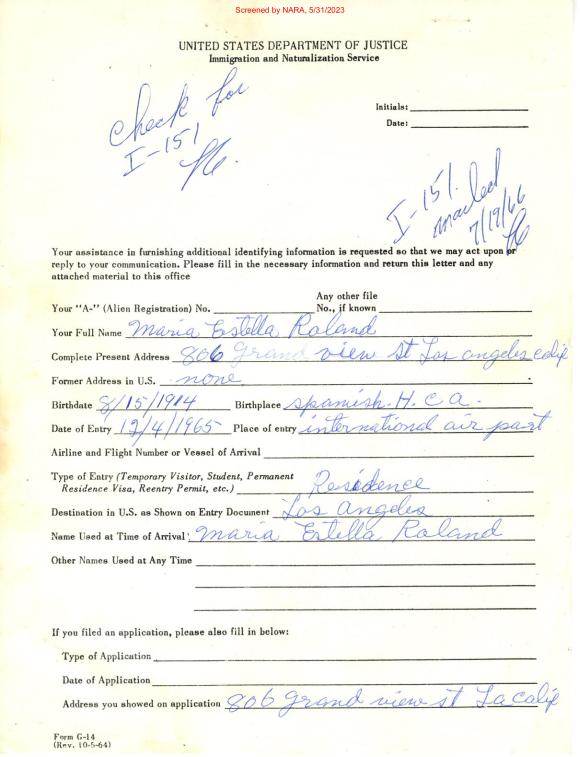 Screened by NARA, 5/31/2023
UNITED STATES DEPARTMENT OF JUSTICE
Immigration and Naturalization Service
Check for
I-151
Initials:
Date:
I-151.
mailed
7/19/66
Your assistance in furnishing additional identifying information is requested so that we may act upon or
reply to your communication. Please fill in the necessary information and return this letter and any
attached material to this office
Your "A-" (Alien Registration) No.
Any other file
No., if known
Your Full Name Maria Estella Roland
Complete Present Address 806 Grand view st Los angeles calif
Former Address in U.S. none
Birthdate 8/15/1914 Birthplace spanish. H. C a.
Date of Entry 12/4/1965 Place of entry international air part
Airline and Flight Number or Vessel of Arrival
Type of Entry (Temporary Visitor, Student, Permanent
Residence Visa, Reentry Permit, etc.) Residence
Destination in U.S. as Shown on Entry Document Los Angeles
Name Used at Time of Arrival Maria Estella Roland
Other Names Used at Any Time
If you filed an application, please also fill in below:
Type of Application
Date of Application
Address you showed on application 806 grand view st La calif
Form G-14
(Rev. 10-5-64)